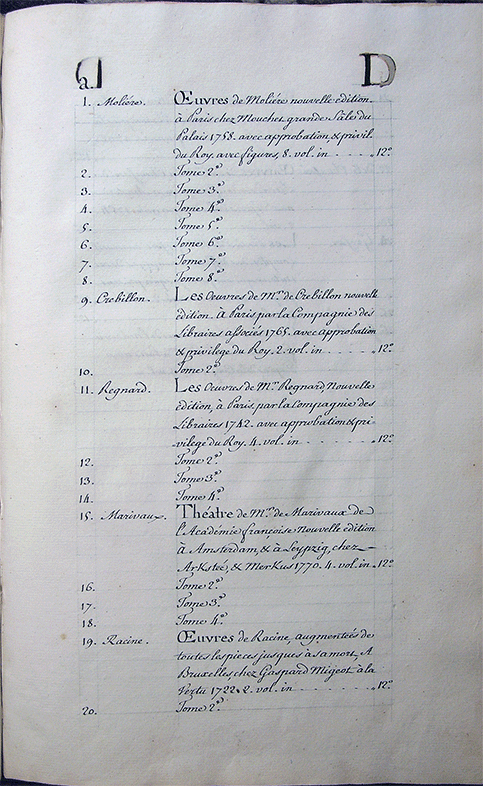 D
a.
1. Moliére. Œuvres de Moliére nouvelle edition.
à Paris chez Mouchet grande Sâle du
Palais 1758. avec approbation, & privil.
du Roy. avec figures, 8. vol. in . . . . „ 12°
2. Tome 2º
3. Tome 3º
4. Tome 4º
5. Tome 5º
6. Tome 6º
7. Tome 7º
8. Tome 8º
9. Crebillon. Les Oeuvres de Mr. de Crebillon nouvelle
edition. à Paris par la Compagnie des
Libraires associés 1765. avec approbation
& privilege du Roy. 2. vol. in . . . . . „ 12º
10. Tome 2º
11. Regnard. Les Oeuvres de Mr. Regnard, Nouvelle
edition, à Paris, par la Compagnie des
Libraires 1742. avec approbation & pri-
vilege du Roy. 4. vol. in . . . . . . . „ 12º
12. Tome 2º
13. Tome 3º
14. Tome 4º
15. Marivaux. Théatre de Mr. de Marivaux de
l'Académie françoise Nouvelle edition
à Amsterdam, & à Leypzig, chez
Arksteé, & Merkus 1770. 4. vol. in „ 12º
16. Tome 2º
17. Tome 3º
18. Tome 4º
19. Racine. Œuvres de Racine, augmenteés de
toutes les pieces jusques à sa mort, A
Bruxelles, chez Gaspard Migeot à la
Vertu 1722. 2. vol. in . . . . . . . . „ 12º
20. Tome 2º